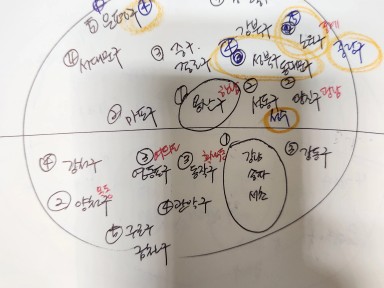 ⑤ 은평구 ④
강북구 ⑤
노원구
중랑구
⑪ 서대문구
③ 중구.
종로구
④ 성북구
동대문구
② 마포구
① 용산구
② 성동구
② 광진구
성수
①
④ 강서구
③ 여의도
영등포구
③ 흑석동
동작구
강남
송파
서초
⑤ 강동구
② 양천구 목동
④ 관악구
⑤ 구로구
금천구